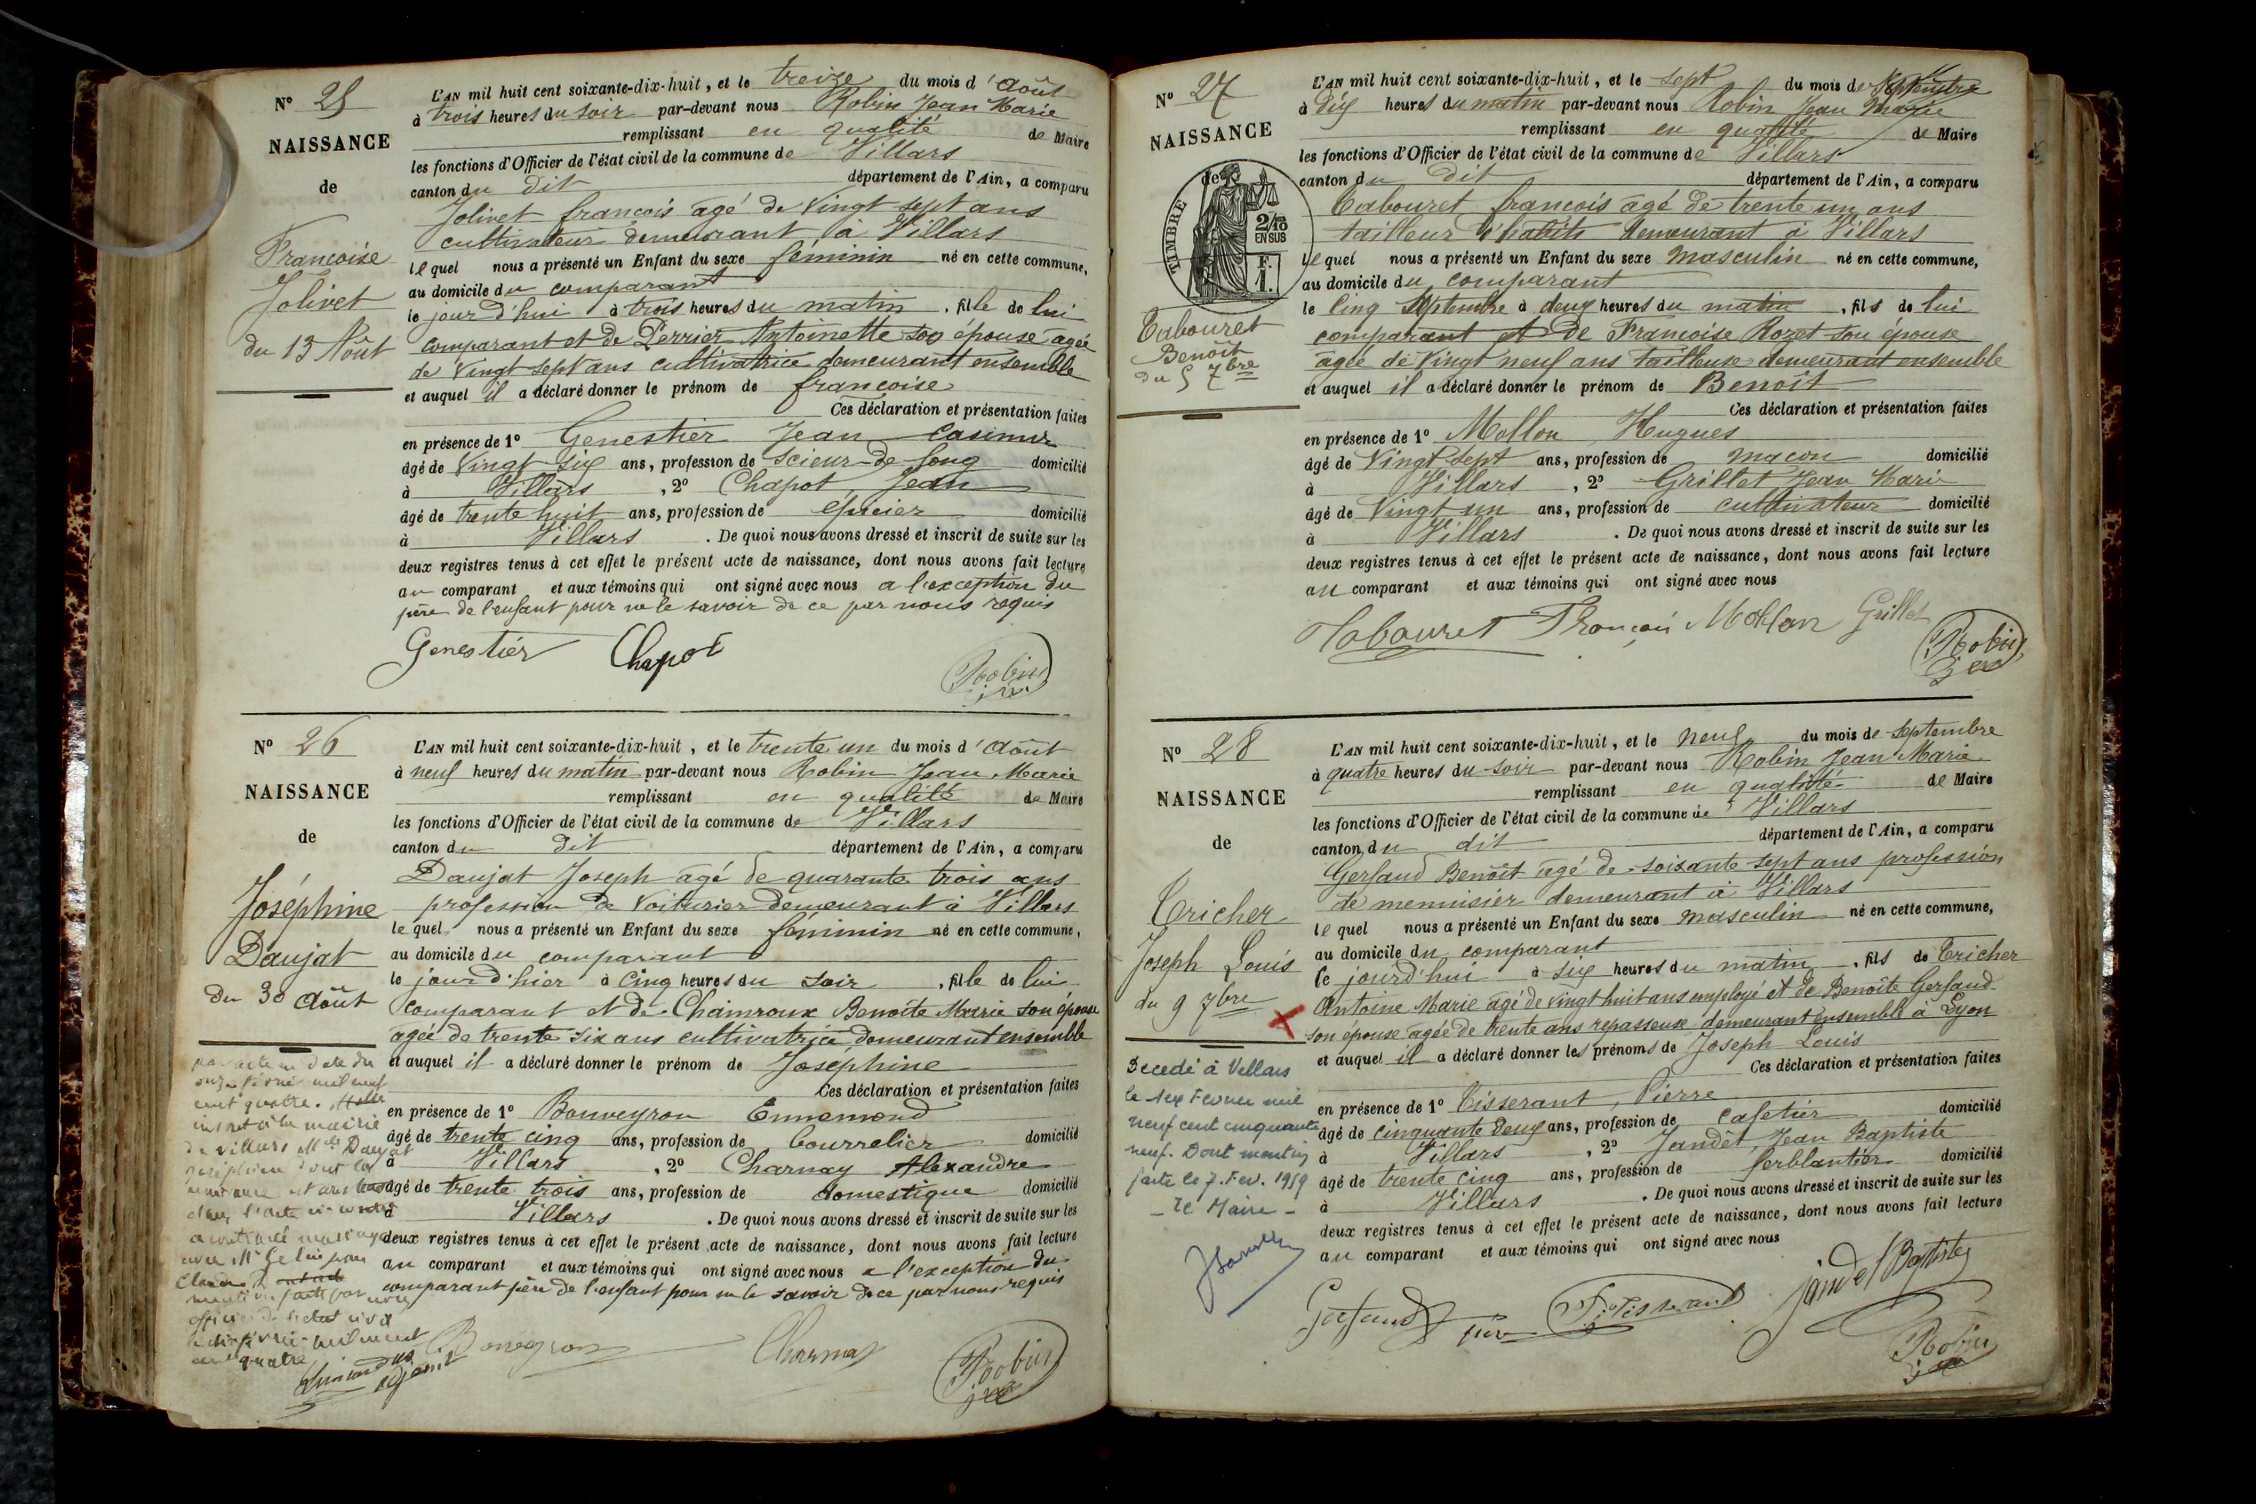 N° 25
NAISSANCE
de
Françoise
Jolivet
du 13 Août
L'AN mil huit cent soixante-dix-huit, et le treize du mois d'Août
à trois heures du soir par-devant nous Robin Jean Marie
remplissant en qualité de Maire
les fonctions d'Officier de l'état civil de la commune de Villars
canton du dit département de l'Ain, a comparu
Jolivet françois agé de vingt sept ans
cultivateur demeurant à Villars
lequel nous a présenté un Enfant du sexe féminin né en cette commune,
au domicile du comparant
le jour d'hui à trois heures du matin, fille de lui
comparant et de Perrier Antoinette son épouse agée
de vingt sept ans cultivatrice demeurant ensemble
et auquel il a déclaré donner le prénom de françoise
Ces déclaration et présentation faites
en présence de 1° Genestier Jean Casimir
âgé de vingt six ans, profession de Scieur-de-long domicilié
à Villars, 2° Chapot Jean
âgé de trente huit ans, profession de épicier domicilié
à Villars. De quoi nous avons dressé et inscrit de suite sur les
deux registres tenus à cet effet le présent acte de naissance, dont nous avons fait lecture
au comparant et aux témoins qui ont signé avec nous a l'exception du
père de l'enfant pour ne le savoir de ce par nous requis
Genestier Chapot Robin
N° 26
NAISSANCE
de
Joséphine
Daujat
Du 30 Août
L'AN mil huit cent soixante-dix-huit, et le trente un du mois d'Août
à neuf heures du matin par-devant nous Robin Jean Marie
remplissant en qualité de Maire
les fonctions d'Officier de l'état civil de la commune de Villars
canton du dit département de l'Ain, a comparu
Daujat Joseph agé de quarante trois ans
profession de voiturier demeurant à Villars
lequel nous a présenté un Enfant du sexe féminin né en cette commune,
au domicile du comparant
le jour d'hier à cinq heures du soir, fille de lui
comparant et de Chamroux Benoîte Marie son épouse
agée de trente six ans cultivatrice demeurant ensemble
et auquel il a déclaré donner le prénom de Joséphine
Ces déclaration et présentation faites
en présence de 1° Bouveyron Ennemond
âgé de trente cinq ans, profession de bourrelier domicilié
à Villars, 2° Charnay Alexandre
âgé de trente trois ans, profession de domestique domicilié
à Villars. De quoi nous avons dressé et inscrit de suite sur les
deux registres tenus à cet effet le présent acte de naissance, dont nous avons fait lecture
au comparant et aux témoins qui ont signé avec nous a l'exception du
comparant père de l'enfant pour ne le savoir de ce par nous requis
par acte en date du
cent quatre.
inscrit à la mairie
de Villars Mlle Daujat
a contracté mariage
avec Mr
officier de l'état civil
quatre
Charnay Robin
N° 27
NAISSANCE
de
TIMBRE 2/10 EN SUS F. 1.
Tabouret
Benoît
du 5 7bre
L'AN mil huit cent soixante-dix-huit, et le sept du mois de Septembre
à dix heures du matin par-devant nous Robin Jean Marie
remplissant en qualité de Maire
les fonctions d'Officier de l'état civil de la commune de Villars
canton du dit département de l'Ain, a comparu
Tabouret françois agé de trente un ans
tailleur d'habits demeurant à Villars
lequel nous a présenté un Enfant du sexe masculin né en cette commune,
au domicile du comparant
le cinq Septembre à deux heures du matin, fils de lui
comparant et de Francoise Rozet son épouse
agée de vingt neuf ans tailleuse demeurant ensemble
et auquel il a déclaré donner le prénom de Benoît
Ces déclaration et présentation faites
en présence de 1° Mollon Hugues
âgé de vingt sept ans, profession de maçon domicilié
à Villars, 2° Grillet Jean Marie
âgé de vingt un ans, profession de cultivateur domicilié
à Villars. De quoi nous avons dressé et inscrit de suite sur les
deux registres tenus à cet effet le présent acte de naissance, dont nous avons fait lecture
au comparant et aux témoins qui ont signé avec nous
Tabouret François Mollon Grillet
Robin
N° 28
NAISSANCE
de
Tricher
Joseph Louis
du 9 7bre
Décédé à Villars
le six Février mil
neuf cent cinquante
neuf. Dont mention
faite le 7. Fev. 1959
- Le Maire -
L'AN mil huit cent soixante-dix-huit, et le neuf du mois de septembre
à quatre heures du soir par-devant nous Robin Jean Marie
remplissant en qualité de Maire
les fonctions d'Officier de l'état civil de la commune de Villars
canton du dit département de l'Ain, a comparu
Gerfaud Benoît agé de soixante sept ans profession
de menuisier demeurant à Villars
lequel nous a présenté un Enfant du sexe masculin né en cette commune,
au domicile du comparant
le jourd'hui à six heures du matin, fils de Tricher
Antoine Marie agé de vingt huit ans employé et de Benoîte Gerfaud
son épouse agée de trente ans repasseuse demeurant ensemble à Lyon
et auquel il a déclaré donner les prénoms de Joseph Louis
Ces déclaration et présentation faites
en présence de 1° Tisserant Pierre
âgé de cinquante deux ans, profession de cafetier domicilié
à Villars, 2° Jandet Jean Baptiste
âgé de trente cinq ans, profession de ferblantier domicilié
à Villars. De quoi nous avons dressé et inscrit de suite sur les
deux registres tenus à cet effet le présent acte de naissance, dont nous avons fait lecture
au comparant et aux témoins qui ont signé avec nous
Gerfaud Tisserant Jandet Baptiste
Robin